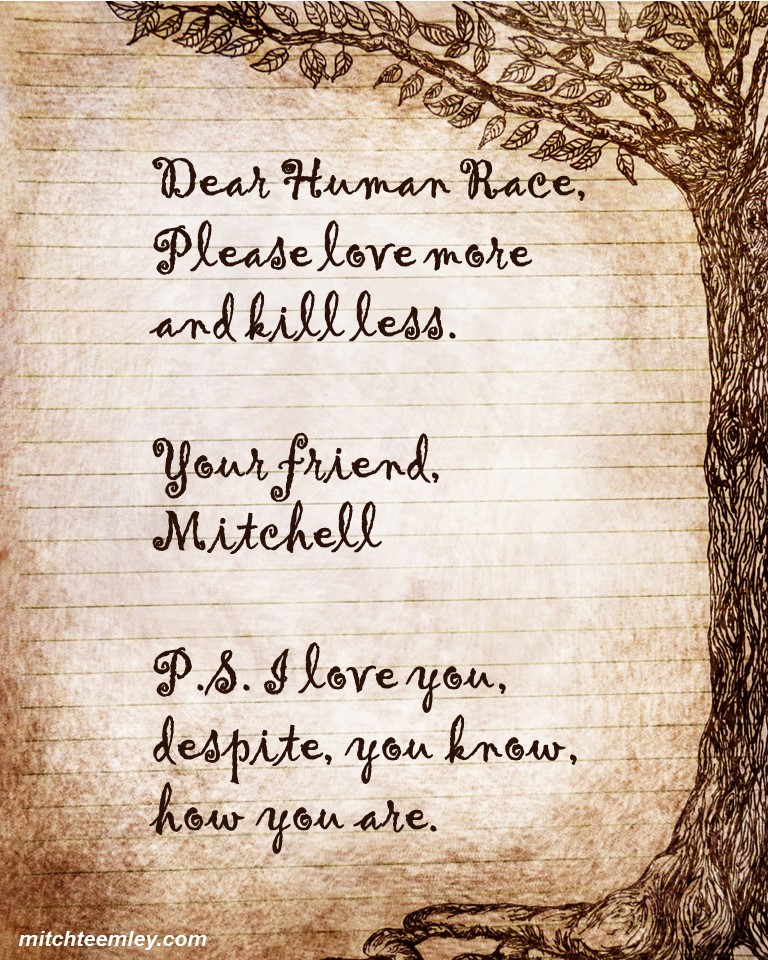 Dear Human Race,
Please love more
and kill less.
Your friend,
Mitchell
P.S. I love you,
despite, you know,
how you are.
mitchteemley.com